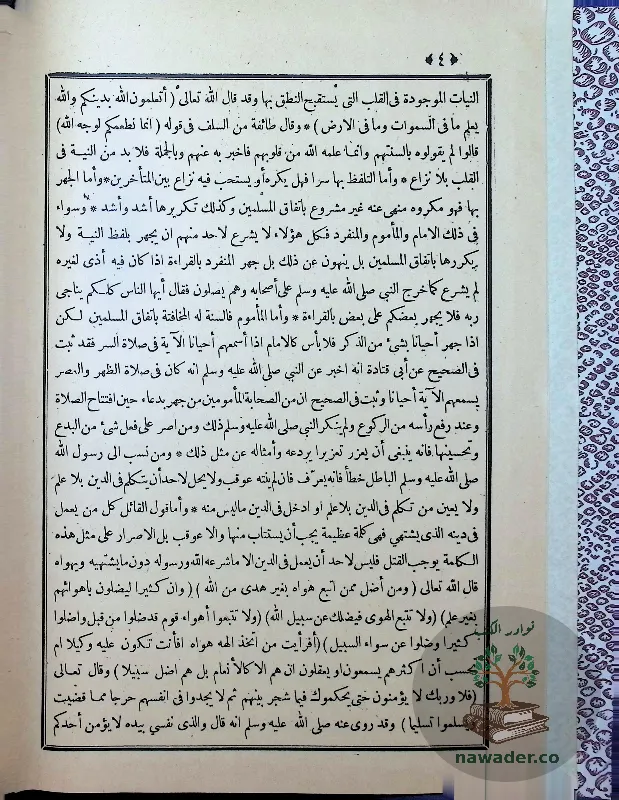 ﴿٤﴾
النيات الموجودة فى القلب التى يستقبح النطق بها وقد قال الله تعالى ( أتعلمون الله بدينكم والله
يعلم ما فى السموات وما فى الارض ) * وقال طائفة من السلف فى قوله ( انما نطعمكم لوجه الله)
قالوا لم يقولوه بالسنتهم وانما علمه الله من قلوبهم فاخبر به عنهم وبالجملة فلا بد من النيـة فى
القلب بلا نزاع * وأما التلفظ بها سرا فهل يكره أو يستحب فيه نزاع بين المتأخرين * وأما الجهر
بها فهو مكروه منهى عنه غير مشروع باتفاق المسلمين وكذلك تكريرها أشد وأشد * وسواء
فى ذلك الامام والمأموم والمنفرد فكل هؤلاء لا يشرع لاحد منهم ان يجهر بلفظ النيـة ولا
يكررها باتفاق المسلمين بل ينهون عن ذلك بل جهر المنفرد بالقراءة اذا كان فيه أذى لغيره
لم يشرع كما خرج النبي صلى الله عليه وسلم على أصحابه وهم يصلون فقال أيها الناس كلكم يناجى
ربه فلا يجهر بعضكم على بعض بالقراءة * وأما المأموم فالسنة له المخافتة باتفاق المسلمين لكن
اذا جهر أحيانا بشئ من الذكر فلا بأس كالامام اذا أسمعهم أحيانا الآية فى صلاة السر فقد ثبت
فى الصحيح عن أبى قتادة انه اخبر عن النبي صلى الله عليه وسلم انه كان فى صلاة الظهر والعصر
يسمعهم الآية أحيانا وثبت فى الصحيح ان من الصحابة المأمومين من جهر بدعاء حين افتتاح الصلاة
وعند رفع رأسه من الركوع ولم ينكر النبي صلى الله عليه وسلم ذلك ومن اصر على فعل شئ من البدع
وتحسينها فانه ينبغى أن يعزر تعزيرا يردعه وأمثاله عن مثل ذلك * ومن نسب الى رسول الله
صلى الله عليه وسلم الباطل خطأ فانه يعرّف فان لم ينته عوقب ولا يحل لاحد أن يتكلم فى الدين بلا علم
ولا يعين من تكلم فى الدين بلا علم او ادخل فى الدين ما ليس منه * وأما قول القائل كل من يعمل
فى دينه الذى يشتهي فهى كلمة عظيمة يجب أن يستتاب منها والا عوقب بل الاصرار على مثل هذه
الكلمة يوجب القتل فليس لاحد أن يعمل فى الدين الا ما شرعه الله ورسوله دون ما يشتهيه ويهواه
قال الله تعالى ( ومن أضل ممن اتبع هواه بغير هدى من الله ) ( وان كثيرا ليضلون باهوائهم
بغير علم ) ( ولا تتبع الهوى فيضلك عن سبيل الله) ( ولا تتبعوا أهواء قوم قد ضلوا من قبل واضلوا
كثيرا وضلوا عن سواء السبيل ) ( أفرأيت من اتخذ الهه هواه افأنت تكون عليه وكيلا ام
تحسب أن اكثرهم يسمعون او يعقلون ان هم الا كالأنعام بل هم اضل سبيلا ) وقال تعـالى
( فلا وربك لا يؤمنون حتى يحكموك فيما شجر بينهم ثم لا يجدوا فى انفسهم حرجا ممـا قضيت
ويسلموا تسليما ) وقد روى عنه صلى الله عليه وسلم انه قال والذى نفسي بيده لا يؤمن أحدكم
نوادر الكتب
nawader.co